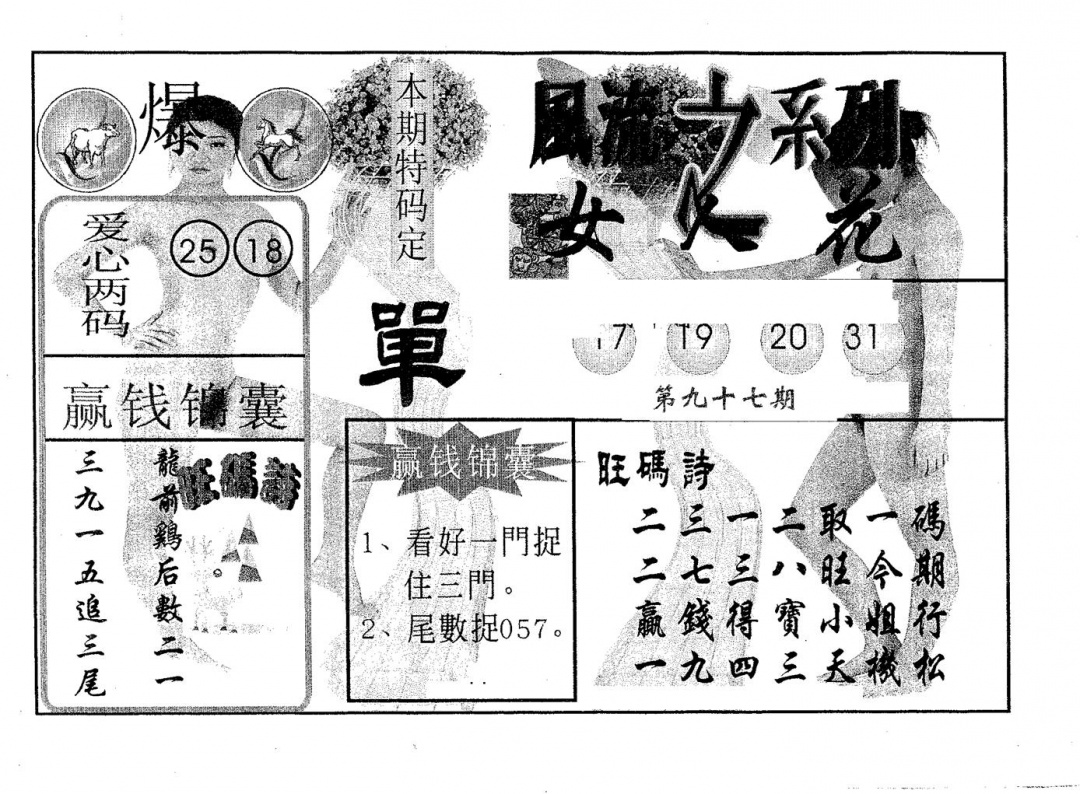 爆
本期特码定
單
風流之系列
女人花
爱心两码
25 18
赢钱锦囊
旺碼詩
龍前鷄后數二一
三九一五追三尾
17 19 20 31
第九十七期
赢钱锦囊
1、看好一門捉
住三門。
2、尾數捉057。
旺碼詩
二三一二取一碼
二七三八旺今期
贏錢得寶小姐行
一九四三天機松